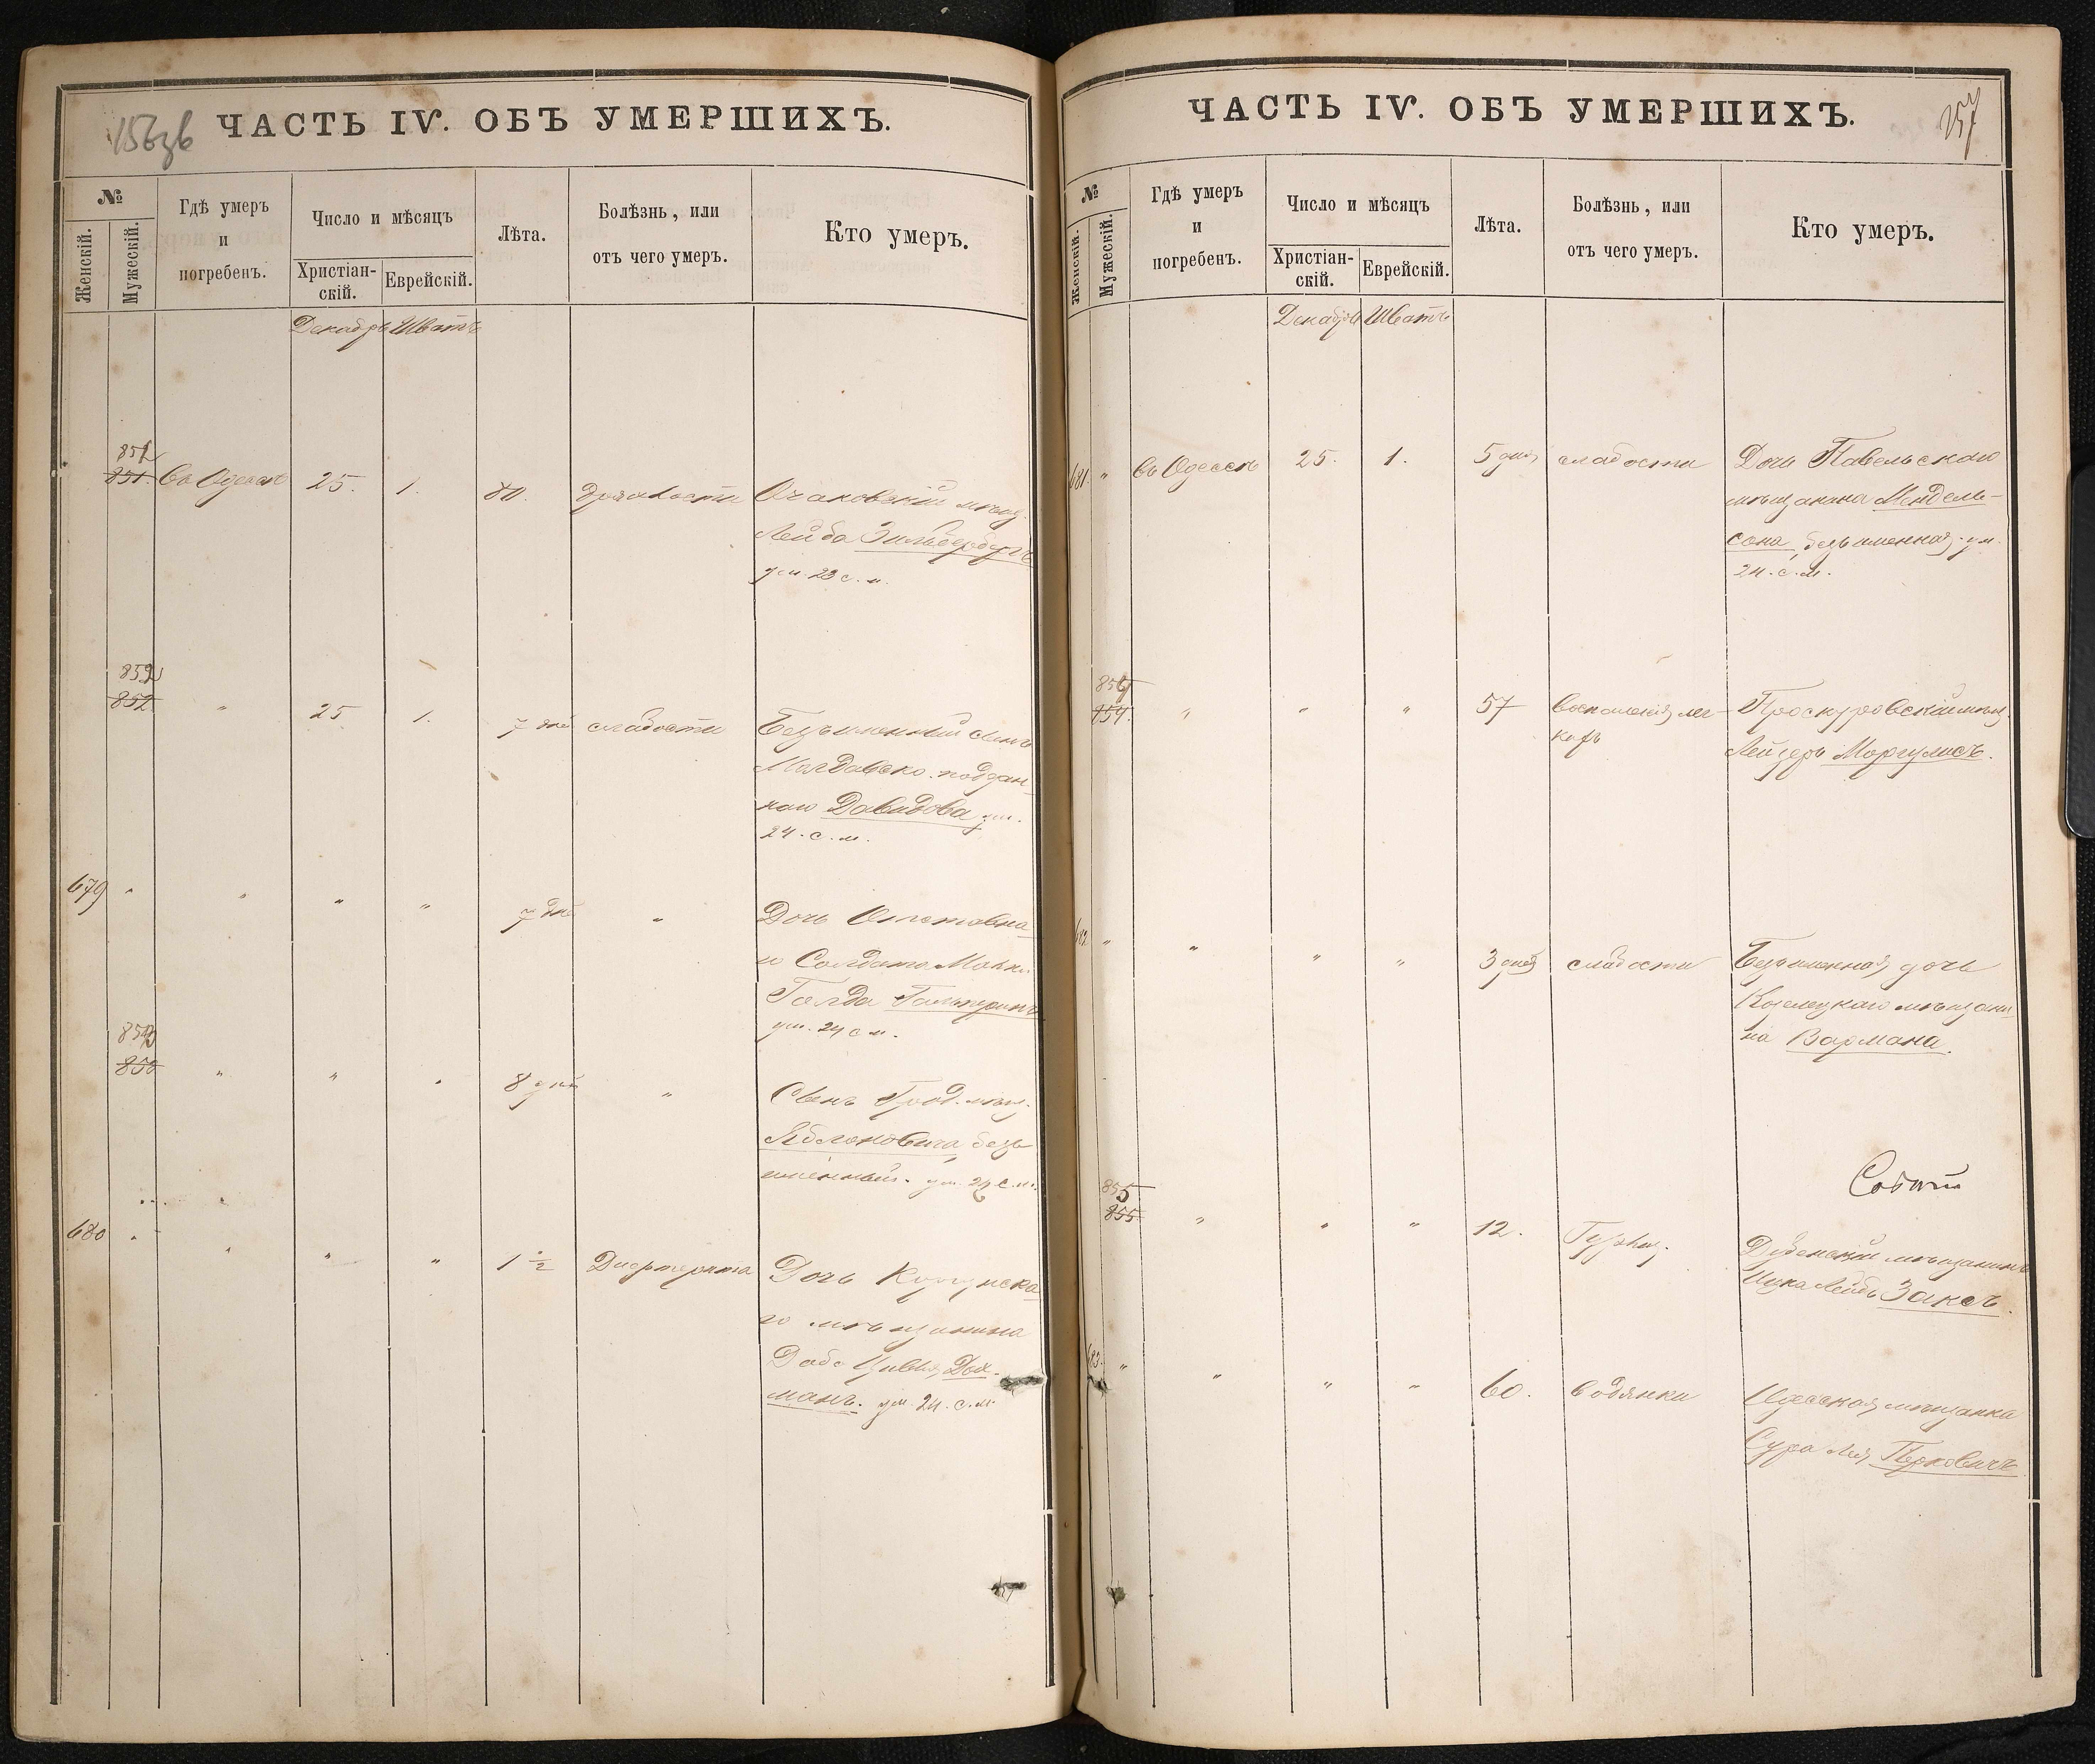 156зв
ЧАСТЬ IV. ОБЪ УМЕРШИХЪ.
№
Женскій.
Мужескій.
Гдѣ умеръ
и
погребенъ.
Число и мѣсяцъ
Христіан-
скій.
Еврейскій.
Лѣта.
Болѣзнь, или
отъ чего умеръ.
Кто умеръ.
Декабрь Шватъ
851
851. въ Одессѣ 25. 1. 80. Очаковскій мѣщ.
Лейба Зильберберг
ум. 23 с. м.
852
852 " 25 1. 7 дней слабости Безъименный сынъ
Молдавско. поддан-
наго Давидова ум.
24. с. м.
679 " " " " 7 дней " Дочь Отставна-
го Солдата
Голда Гальперинъ
ум. 24 с м.
853
850 " " " 8 дней " Сынъ Град. мѣщ.
Яблоновича безъ
именный. ум. 24 с. м.
680 " " " " 1 ½ Дифтерита Дочь
го мѣщанина
Доба Цивья Дох-
манъ. ум. 24. с. м.
157
ЧАСТЬ IV. ОБЪ УМЕРШИХЪ.
№
Женскій.
Мужескій.
Гдѣ умеръ
и
погребенъ.
Число и мѣсяцъ
Христіан-
скій.
Еврейскій.
Лѣта.
Болѣзнь, или
отъ чего умеръ.
Кто умеръ.
Декабрь Шватъ
681. " въ Одессѣ 25. 1. 5 дней слабости Дочь Павельскаго
мѣщанина Мендель-
сона, безъименная. ум.
24. с. м.
854
854. " " " 57 воспаленія лег-
кихъ
Проскуровскій мѣщ.
Лейзеръ Моргулисъ.
682 " " " " 3 дней слабости Безъименная дочь
Козелецкаго мѣщани-
на Вармана.
855
855. " " " 12. Дубенскій мѣщанинъ
Ицка Лейбъ Заксъ.
683. " " " " 60. водянки Одесская мѣщанка
Сура Лея Перковичъ